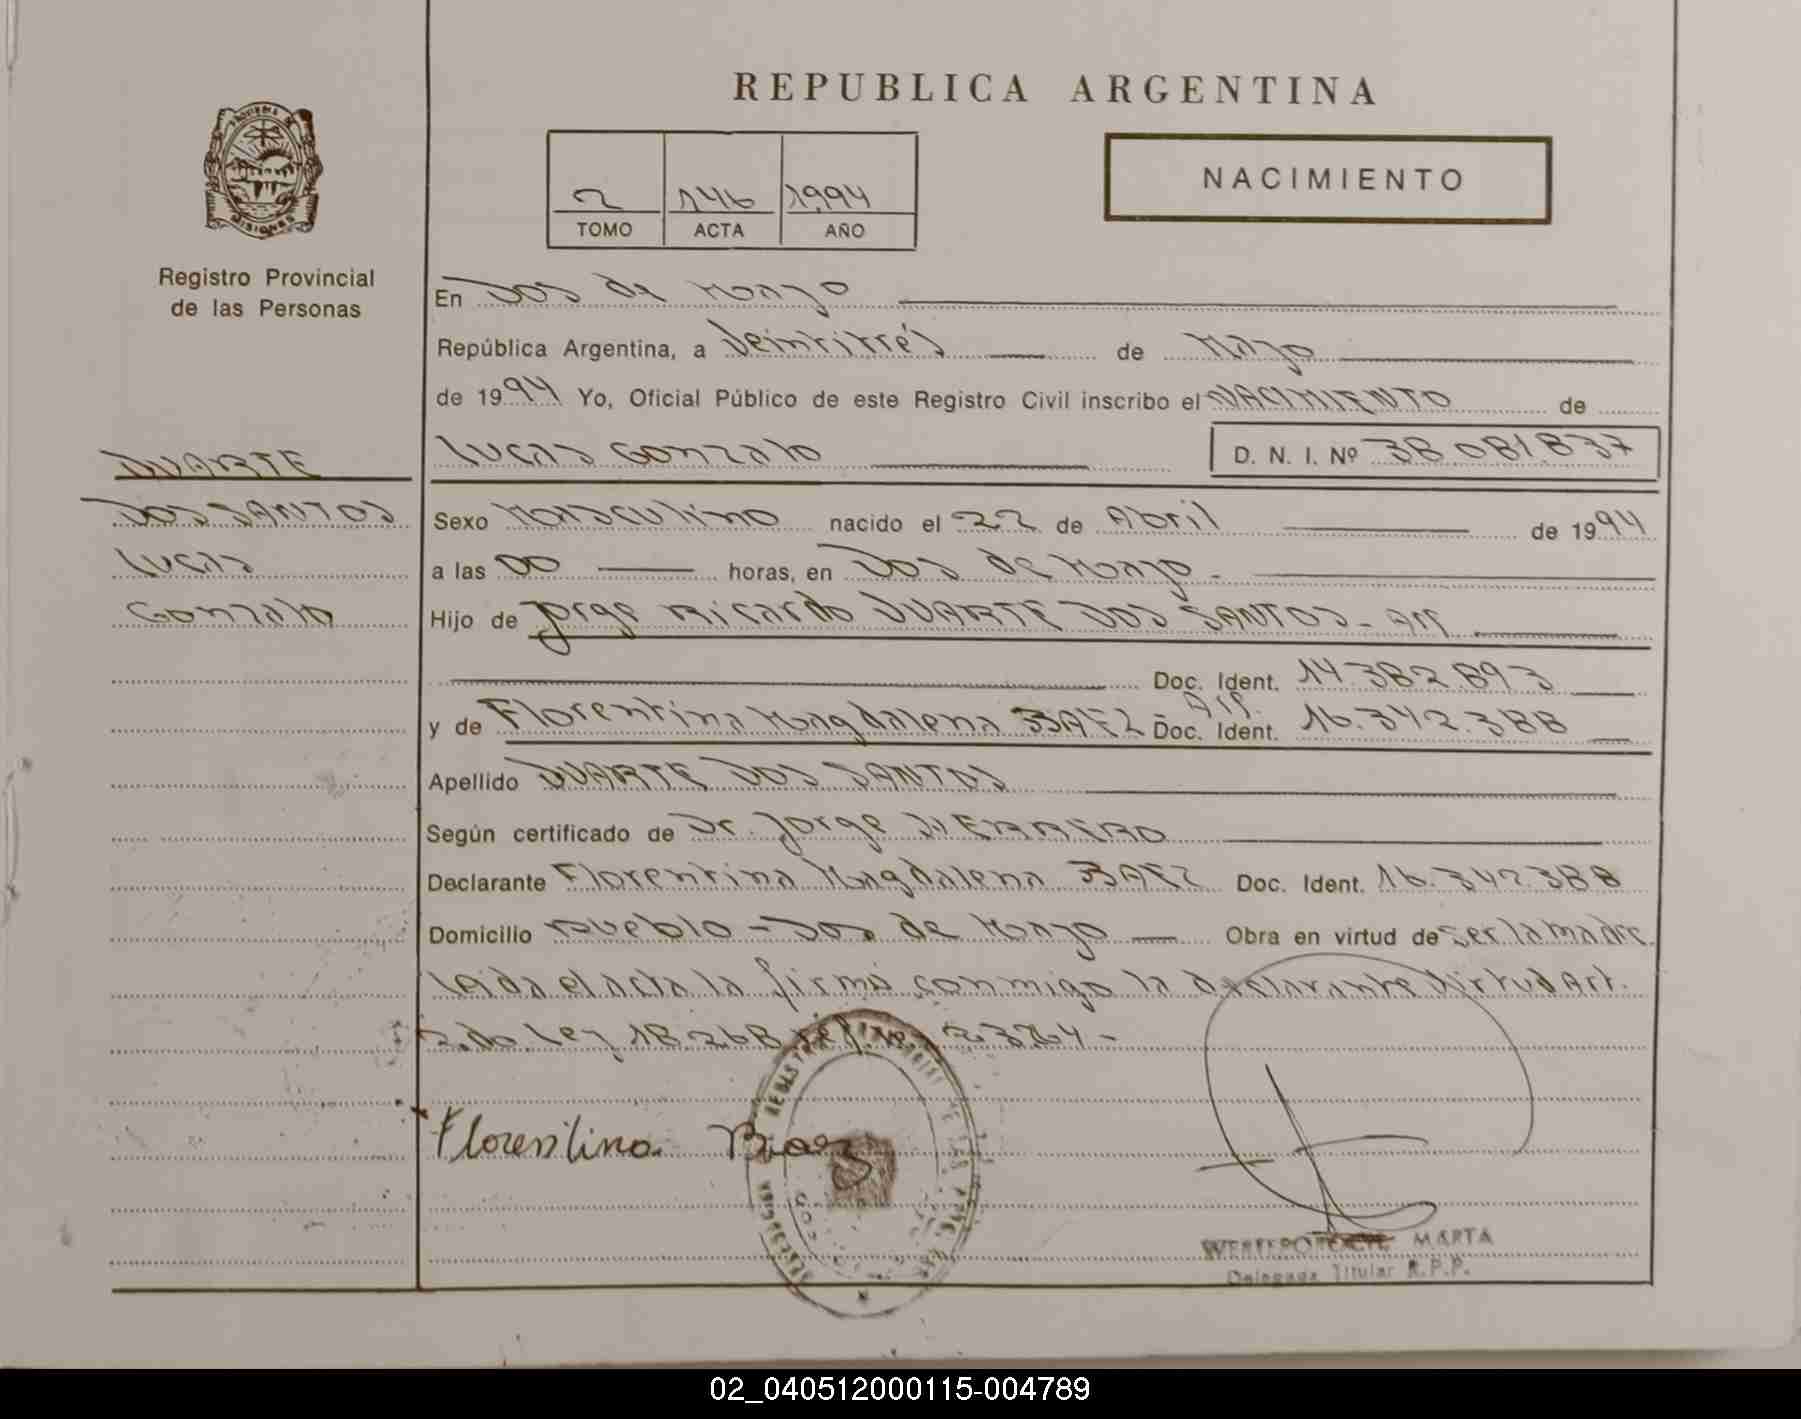 REPUBLICA ARGENTINA
NACIMIENTO
2 146 1994
TOMO ACTA AÑO
Registro Provincial
de las Personas
En Dos de Mayo
República Argentina, a Veintitrés de Mayo
de 1994 Yo, Oficial Público de este Registro Civil inscribo el NACIMIENTO de
Lucas Gonzalo D. N. I. Nº 38.081.837
DUARTE
DOS SANTOS
Lucas
Gonzalo
Sexo Masculino nacido el 22 de Abril de 1994
a las 00 horas, en Dos de Mayo.-
Hijo de Jorge Ricardo DUARTE DOS SANTOS - Arg
Doc. Ident. 14.382.893
y de Florentina Magdalena BAEZ - Arg. Doc. Ident. 16.342.388
Apellido DUARTE DOS SANTOS
Según certificado de Dr. Jorge
Declarante Florentina Magdalena BAEZ Doc. Ident. 16.342.388
Domicilio Pueblo - Dos de Mayo Obra en virtud de ser la madre.
Leida el acta la firma conmigo la declarante Virtud Art.
2do. Ley 18.268
Florentina Baez
MARTA
Delegada Titular R.P.P.
02_040512000115-004789